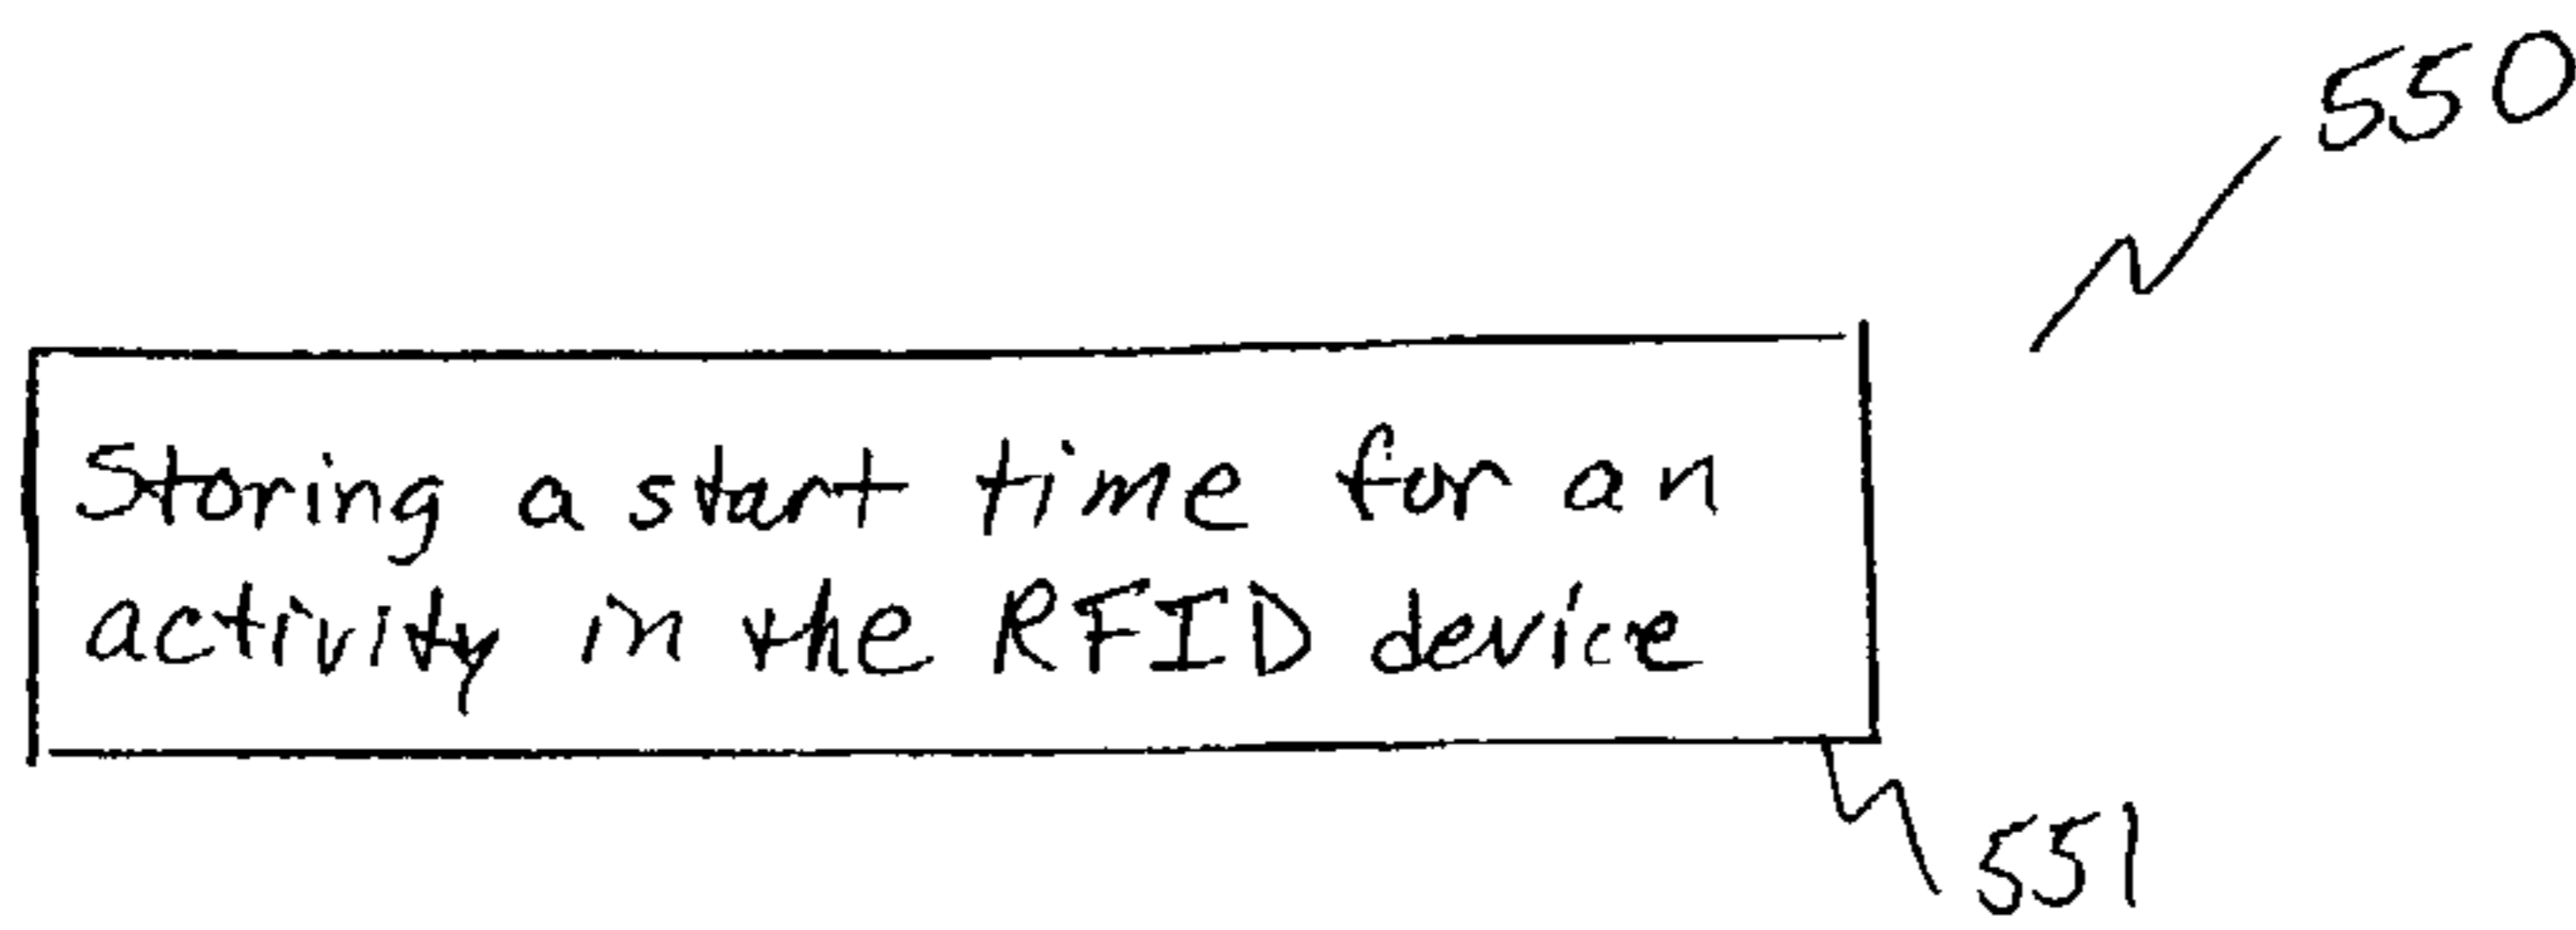 550
Storing a start time for an
activity in the RFID device
551